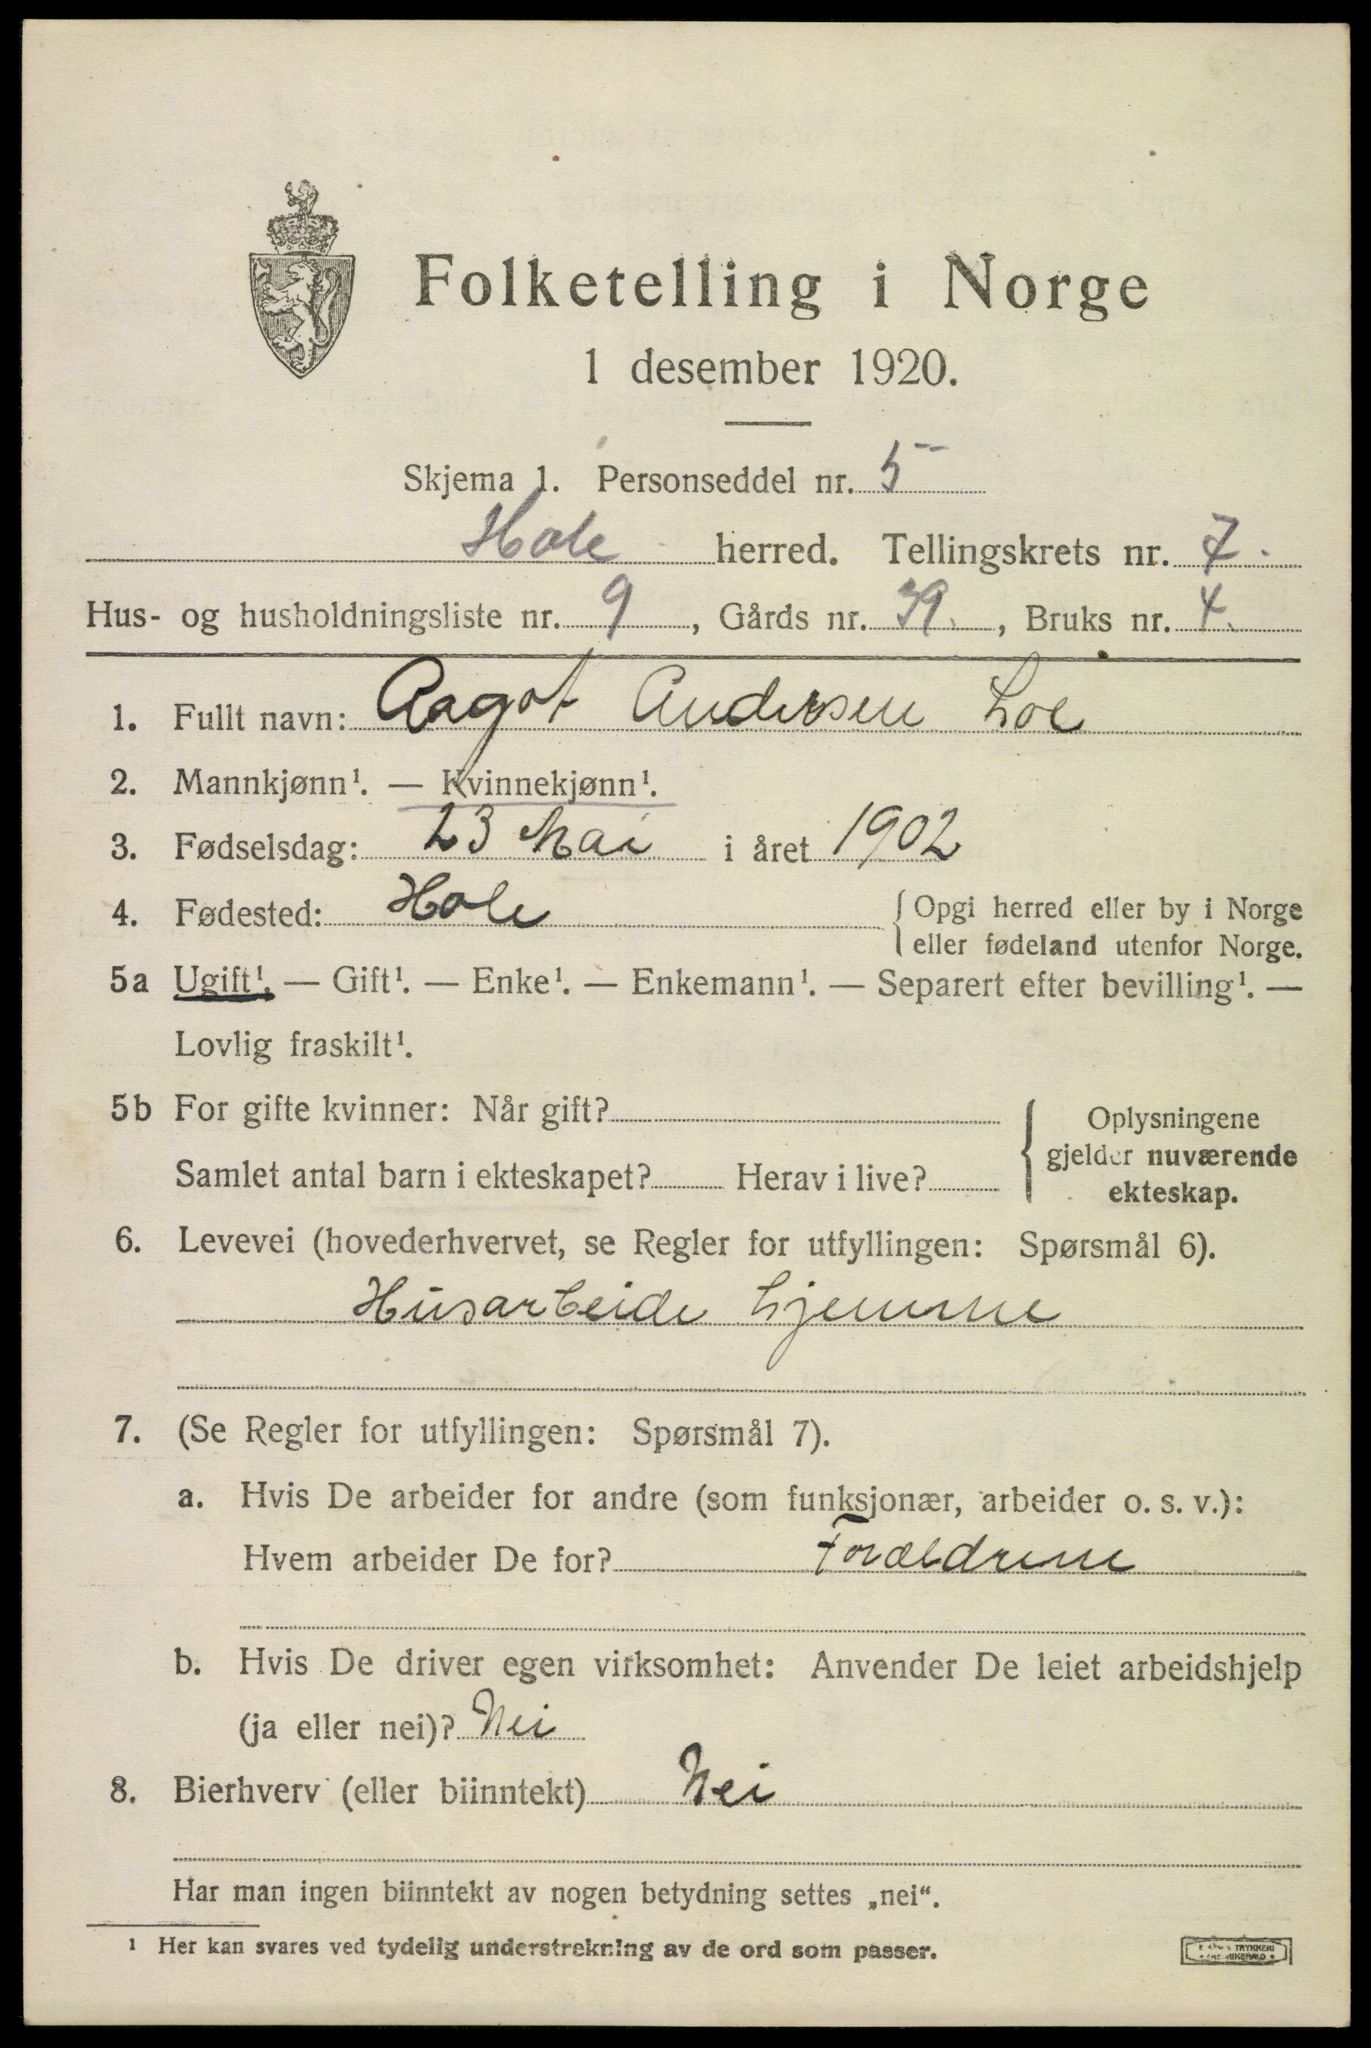 Folketelling i Norge
1 desember 1920.
Skjema 1. Personseddel nr. 5
Hole herred. Tellingskrets nr. 7.
Hus- og husholdningsliste nr. 9, Gårds nr. 39., Bruks nr. 4.
1. Fullt navn: Aagot Andersen Loe
2. Mannkjønn¹. — Kvinnekjønn¹.
3. Fødselsdag: 23 Mai i året 1902
4. Fødested: Hole { Opgi herred eller by i Norge
eller fødeland utenfor Norge.
5a Ugift¹. — Gift¹. — Enke¹. — Enkemann¹. — Separert efter bevilling¹. —
Lovlig fraskilt¹.
5b For gifte kvinner: Når gift? { Oplysningene
gjelder nuværende
ekteskap.
Samlet antal barn i ekteskapet? Herav i live?
6. Levevei (hovederhvervet, se Regler for utfyllingen: Spørsmål 6).
Husarbeide hjemme
7. (Se Regler for utfyllingen: Spørsmål 7).
a. Hvis De arbeider for andre (som funksjonær, arbeider o. s. v.):
Hvem arbeider De for? Forældrene
b. Hvis De driver egen virksomhet: Anvender De leiet arbeidshjelp
(ja eller nei)? Nei
8. Bierhverv (eller biinntekt) Nei
Har man ingen biinntekt av nogen betydning settes „nei“.
¹ Her kan svares ved tydelig understrekning av de ord som passer.
TRYKKERI